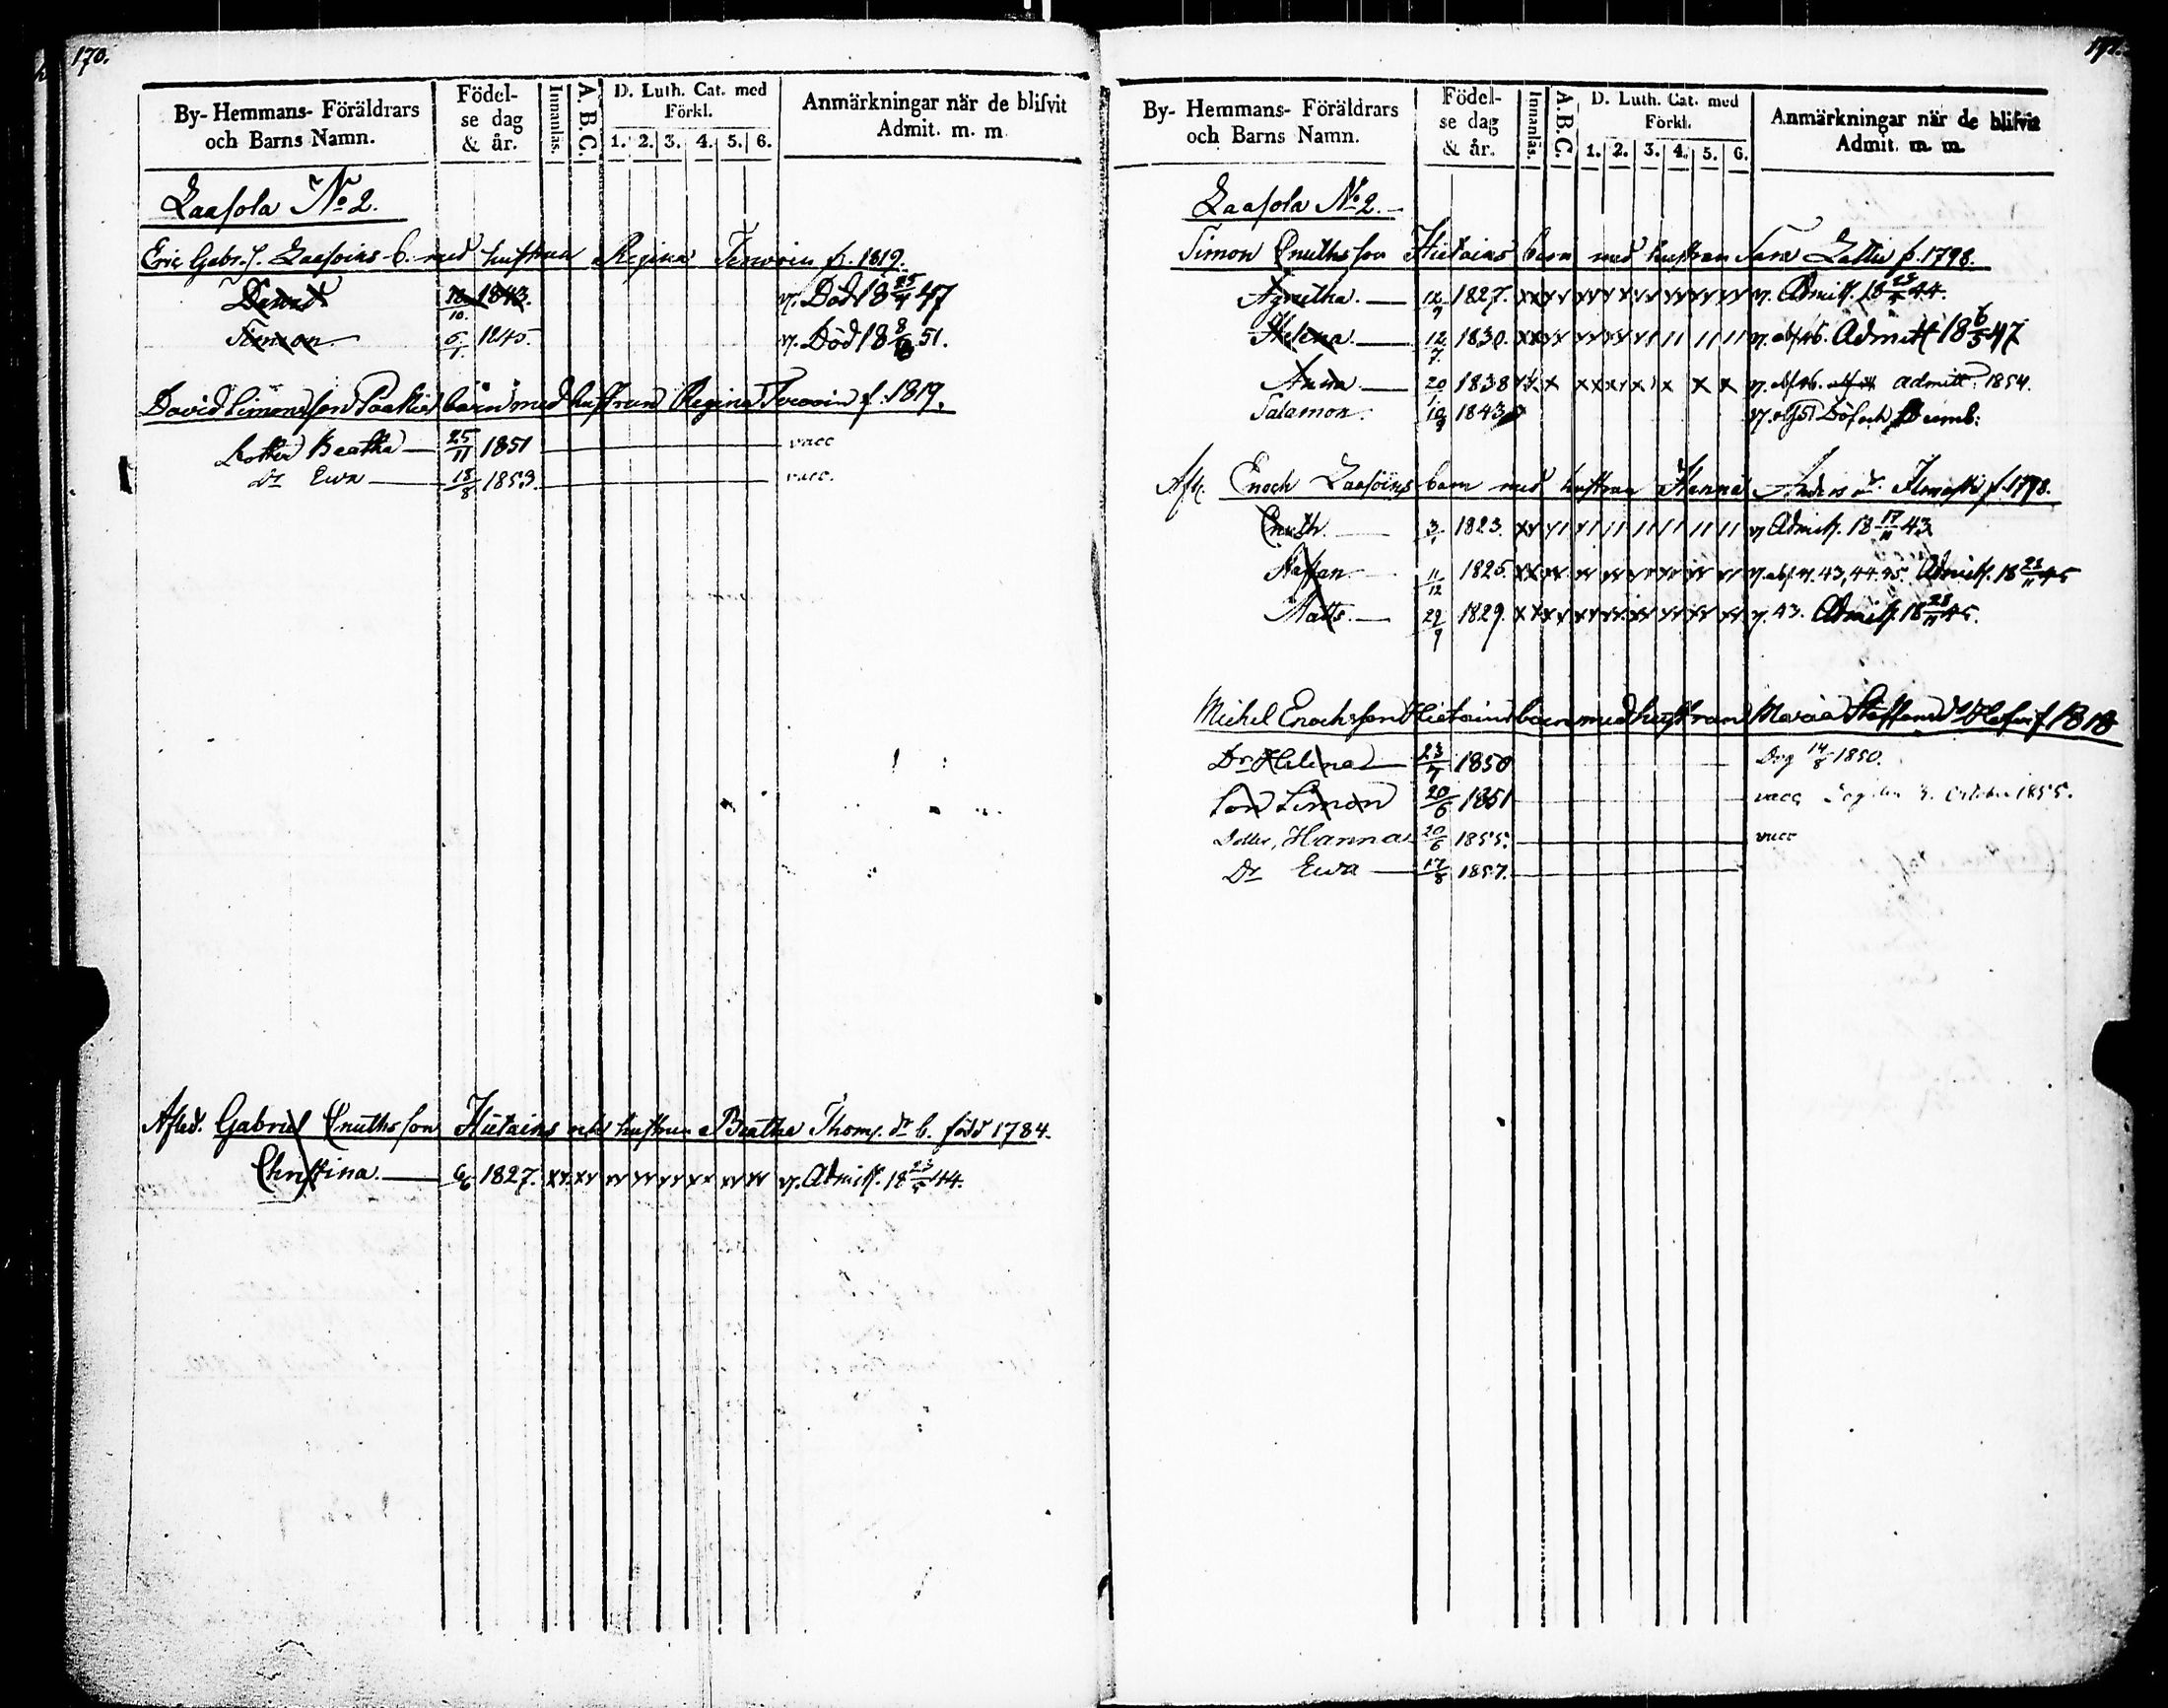 170.
By- Hemmans- Föräldrars och Barns Namn. Födel-se dag & år. Innanläs. A. B. C. D. Luth. Cat. med Förkl. 1. 2. 3. 4. 5. 6. Anmärkningar när de blifvit Admit. m. m.
Laasola No 2.
Eric Gabr.s. Laasoins b. med hustrun Regina Terwoin f. 1819.
David 18/10 1843. v. Död 18 25/4 47
Simon 6/1 1845. v. Död 18 8 51.
David Simonsson barn med hustrun Regina Terwoin f. 1819.
Dotter Beatha 25/11 1851 vacc
Dr Ewa 18/8 1853. vacc.
Afled. Gabriel Cnuthsson Hietains hustrun Beatha Thoms. dr b. född 1784.
Christina. 6/6 1827. xx xx xx xx xx xx xx xx v. Admitt. 18 23/5 44.
171.
By- Hemmans- Föräldrars och Barns Namn. Födel-se dag & år. Innanläs. A. B. C. D. Luth. Cat. med Förkl. 1. 2. 3. 4. 5. 6. Anmärkningar när de blifvit Admit. m. m.
Laasola No 2.
Simon Cnuthsson Hietains barn med hustran Sara Lattu f. 1798.
Agnetha. 12/9 1827. v. Admitt. 18 23/5 44.
Helena. 12/7 1830. v. abs. 46. Admitt 18 6/5 47
Anna. 20 1838 v. abs. 46. admitt. 1854.
Salamon. 10/9 1843 v. Döf och Dumb:
Afl. Enoch Laasoins barn med hustrun Hanna Anders dr f. 1798.
Cnuth. 3 1823. v Admitt. 18 17/11 43
Staffan. 11/12 1825. v. abs. v. 43, 44. 45. Admitt. 18 23/11 45
Matts. 29/9 1829. v. 43. Admitt. 18 23/11 45.
Michel Enochsson Hietains barn med hustrun Maria Staffans dr f 1818
Dr Helena 23/7 1850 Dog 14/8 1850.
Son Simon 20/6 1851 vacc Dog den 3. October 1855.
Dotter, Hanna 20/6 1855. vacc
Dr Ewa 17/8 1857.